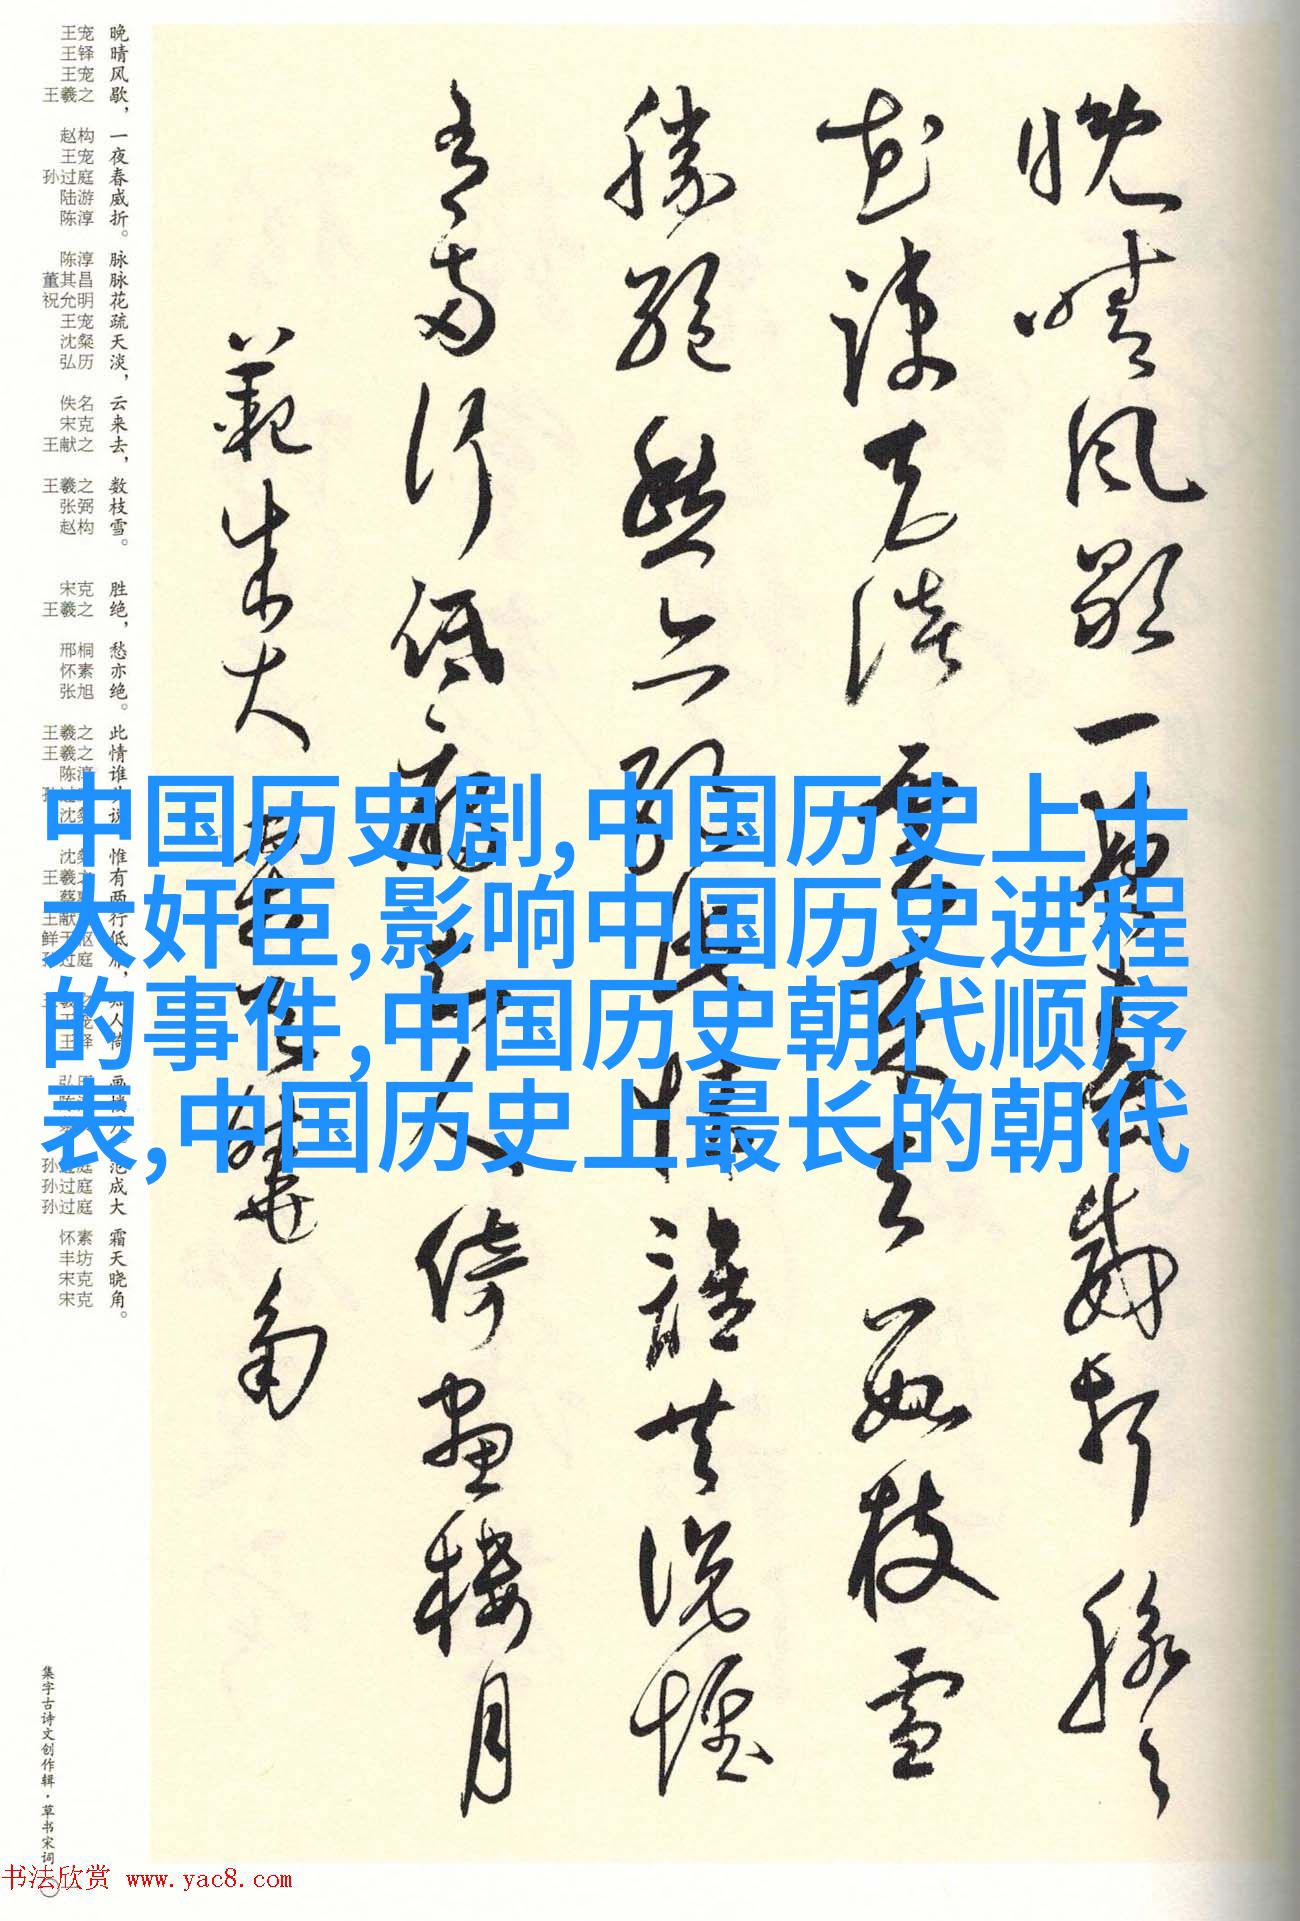 中国历史剧,中国历史上十
大奸臣,影响中国历史进程
的事件,中国历史朝代顺序
表,中国历史上最长的朝代
晚晴風歇一夜春威折脉々
花疎天淡雲来去數枝雪
勝絕愁亦絕此情誰共說惟
有兩行低雁知人倚畫樓月
範成大霜天曉角
晚晴风歇，一夜春威折。脉脉花疏天淡，云来去，数枝雪。 胜绝，愁亦绝。此情谁共说 惟有两行低雁，知人倚画楼月 范成大 霜天晓角。
王宠 王铎 王宠 王羲之 赵构 王宠 孙过庭 陆游 陈淳 陈淳 董其昌 祝允明 王宠 沈粲 弘历 佚名 宋克 王献之 王羲之 张弼 赵构 宋克 王羲之 邢桐 怀素 张旭 王羲之 王羲之 陈淳 孙过庭 孙过庭 孙过庭 怀素 丰坊 宋克 宋克
集字古诗文创作辑·草书宋词
书法欣赏 www.yac8.com